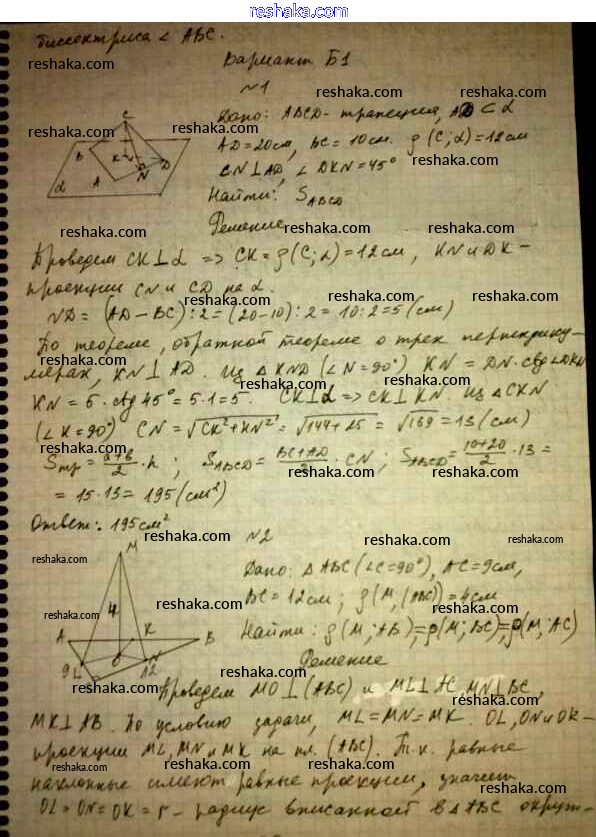 reshaka.com
биссектриса ∠ ABC.
Вариант Б1
№1
Дано: ABCD - трапеция, AD ⊂ α
AD = 20см, BC = 10см. ρ(C; α) = 12см
CN ⊥ AD, ∠ DKN = 45°
Найти: S ABCD
Решение
Проведем CK ⊥ α => CK = ρ(C; α) = 12см, KN и DK -
проекции CN и CD на α.
ND = (AD - BC) : 2 = (20 - 10) : 2 = 10 : 2 = 5 (см)
По теореме, обратной теореме о трех перпендику-
лярах, KN ⊥ AD. Из △ KND (∠ N = 90°) KN = DN · ctg ∠DKN
KN = 5 · ctg 45° = 5 · 1 = 5. CK ⊥ α => CK ⊥ KN. Из △ CKN
(∠ K = 90°) CN = √CK² + KN² = √144 + 25 = √169 = 13 (см)
Sтр = a+b/2 · h ; S ABCD = BC+AD/2 · CN ; S ABCD = 10+20/2 · 13 =
= 15 · 13 = 195 (см²)
Ответ: 195 см²
№2
Дано: △ ABC (∠C = 90°), AC = 9см,
BC = 12см ; ρ(M, (ABC)) = 4см
Найти: ρ(M; AB) = ρ(M; BC) = ρ(M; AC)
Решение
Проведем MO ⊥ (ABC) и ML ⊥ AC, MN ⊥ BC,
MK ⊥ AB. По условию задачи, ML = MN = MK. OL, ON и OK -
проекции ML, MN и MK на пл. (ABC). Т.к. равные
наклонные имеют равные проекции, значит
OL = ON = OK = r - радиус вписанной в △ ABC окруж-